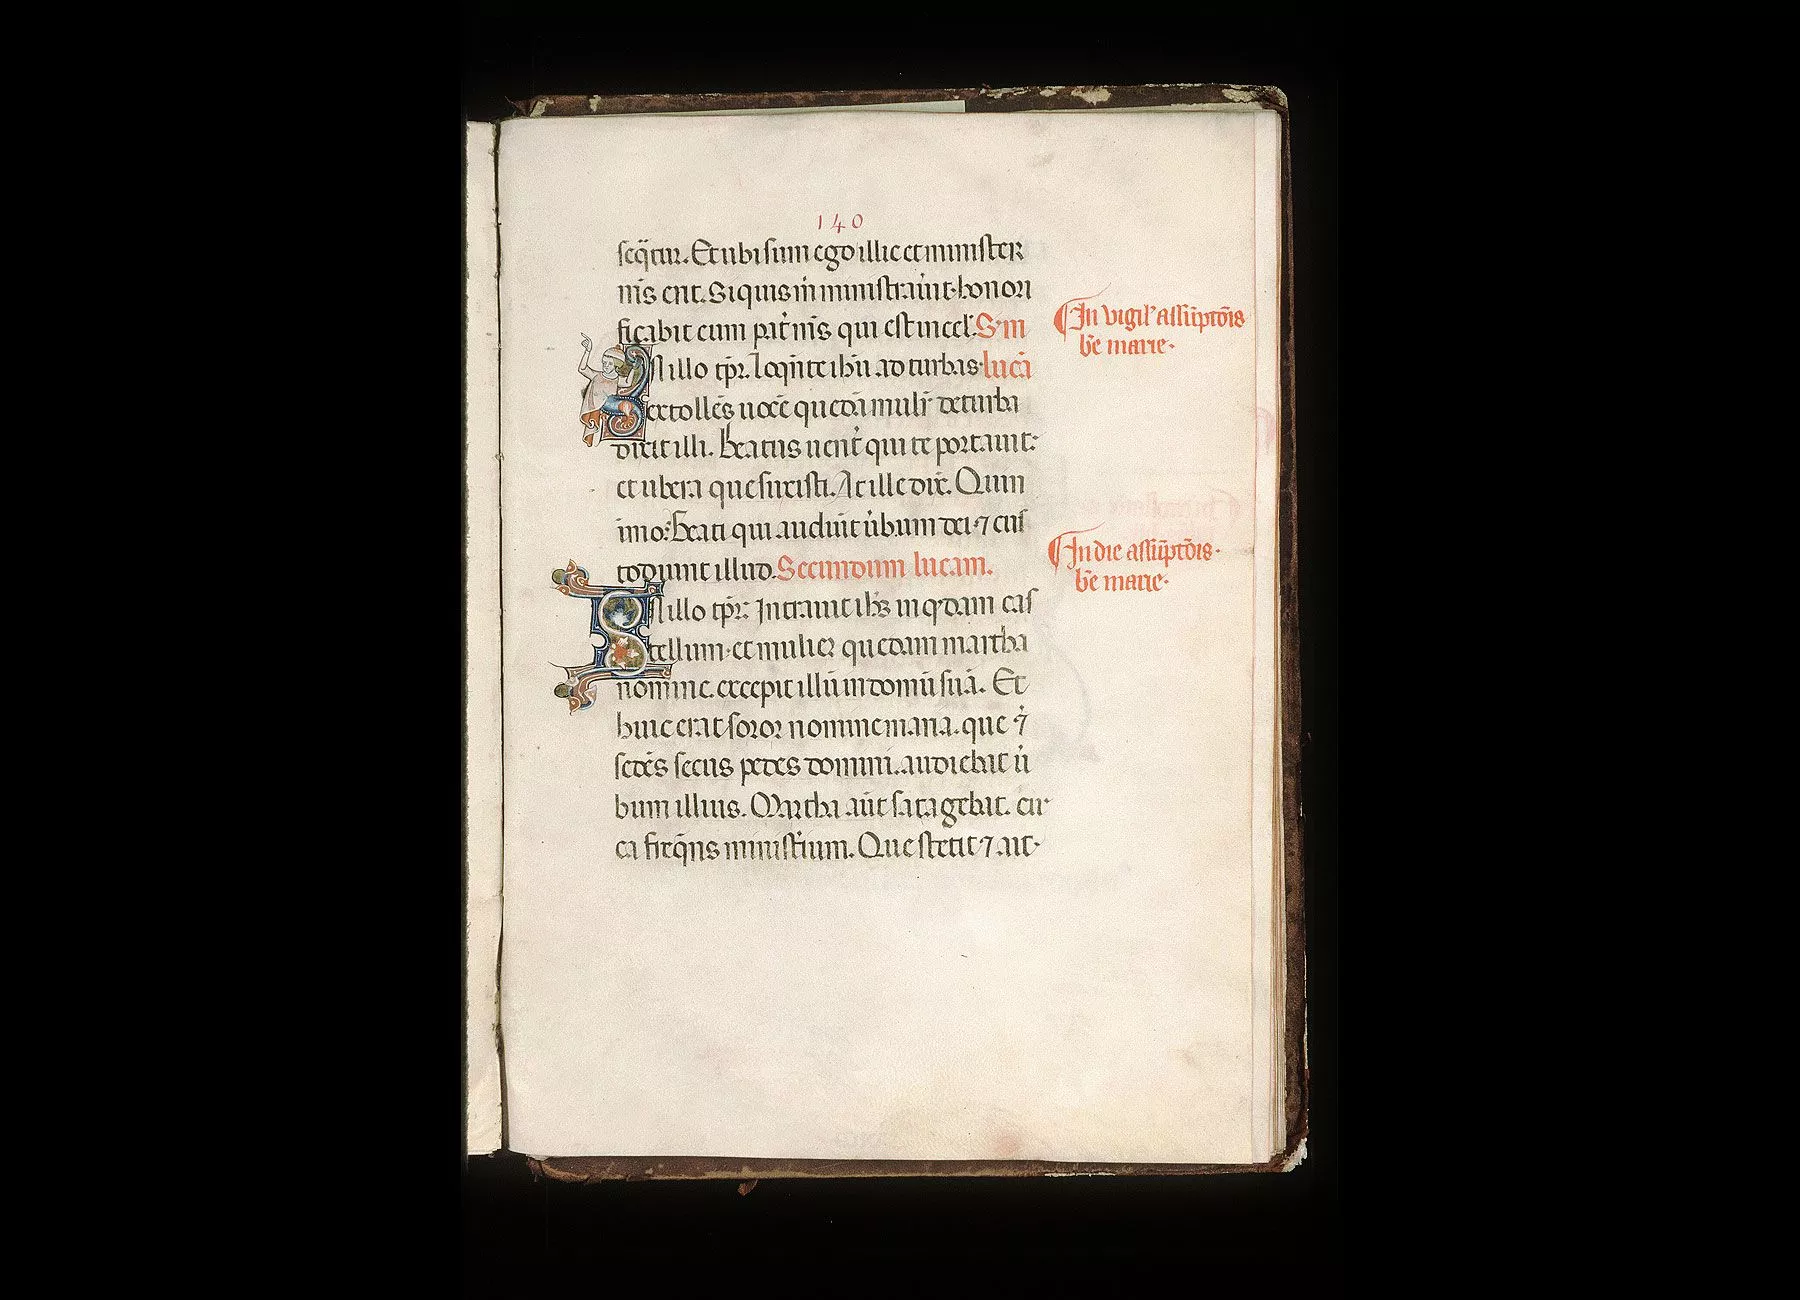 140
seq̄tur. Et ubi sum ego illic et minister
m̄s erit. Si quis m̄ ministrau̇it. honori
ficabit eum pat̓ m̄s qui est in cel̓. Sm̄
In illo tp̄r. Loq̄nte ih̄u ad turbas. lucā
extollēs uocē quedā mulr̄ de turba
dixit illi. Beatus uent̓ qui te portauit:
et ubera que suxisti. At ille dix̄. Quin
imo: Beati qui audiūt u̓bum dei ⁊ cus
todiunt illud. Secundum lucam.
In illo tp̄r: Intrauit ih̄s in q̄dam cas
tellum. et mulier quedam martha
nomine. excepit illū in domū suā. Et
huic erat soror nomine maria. que ⁊̓
sedēs secus pedes domini. audiebat u̓
bum illius. Martha aūt satagebat. cir
ca freq̄ns minist̓ium. Que stetit ⁊ ait.
In vigil̓ assūptōis
b̄e marie.
In die assūptōis.
b̄e marie.